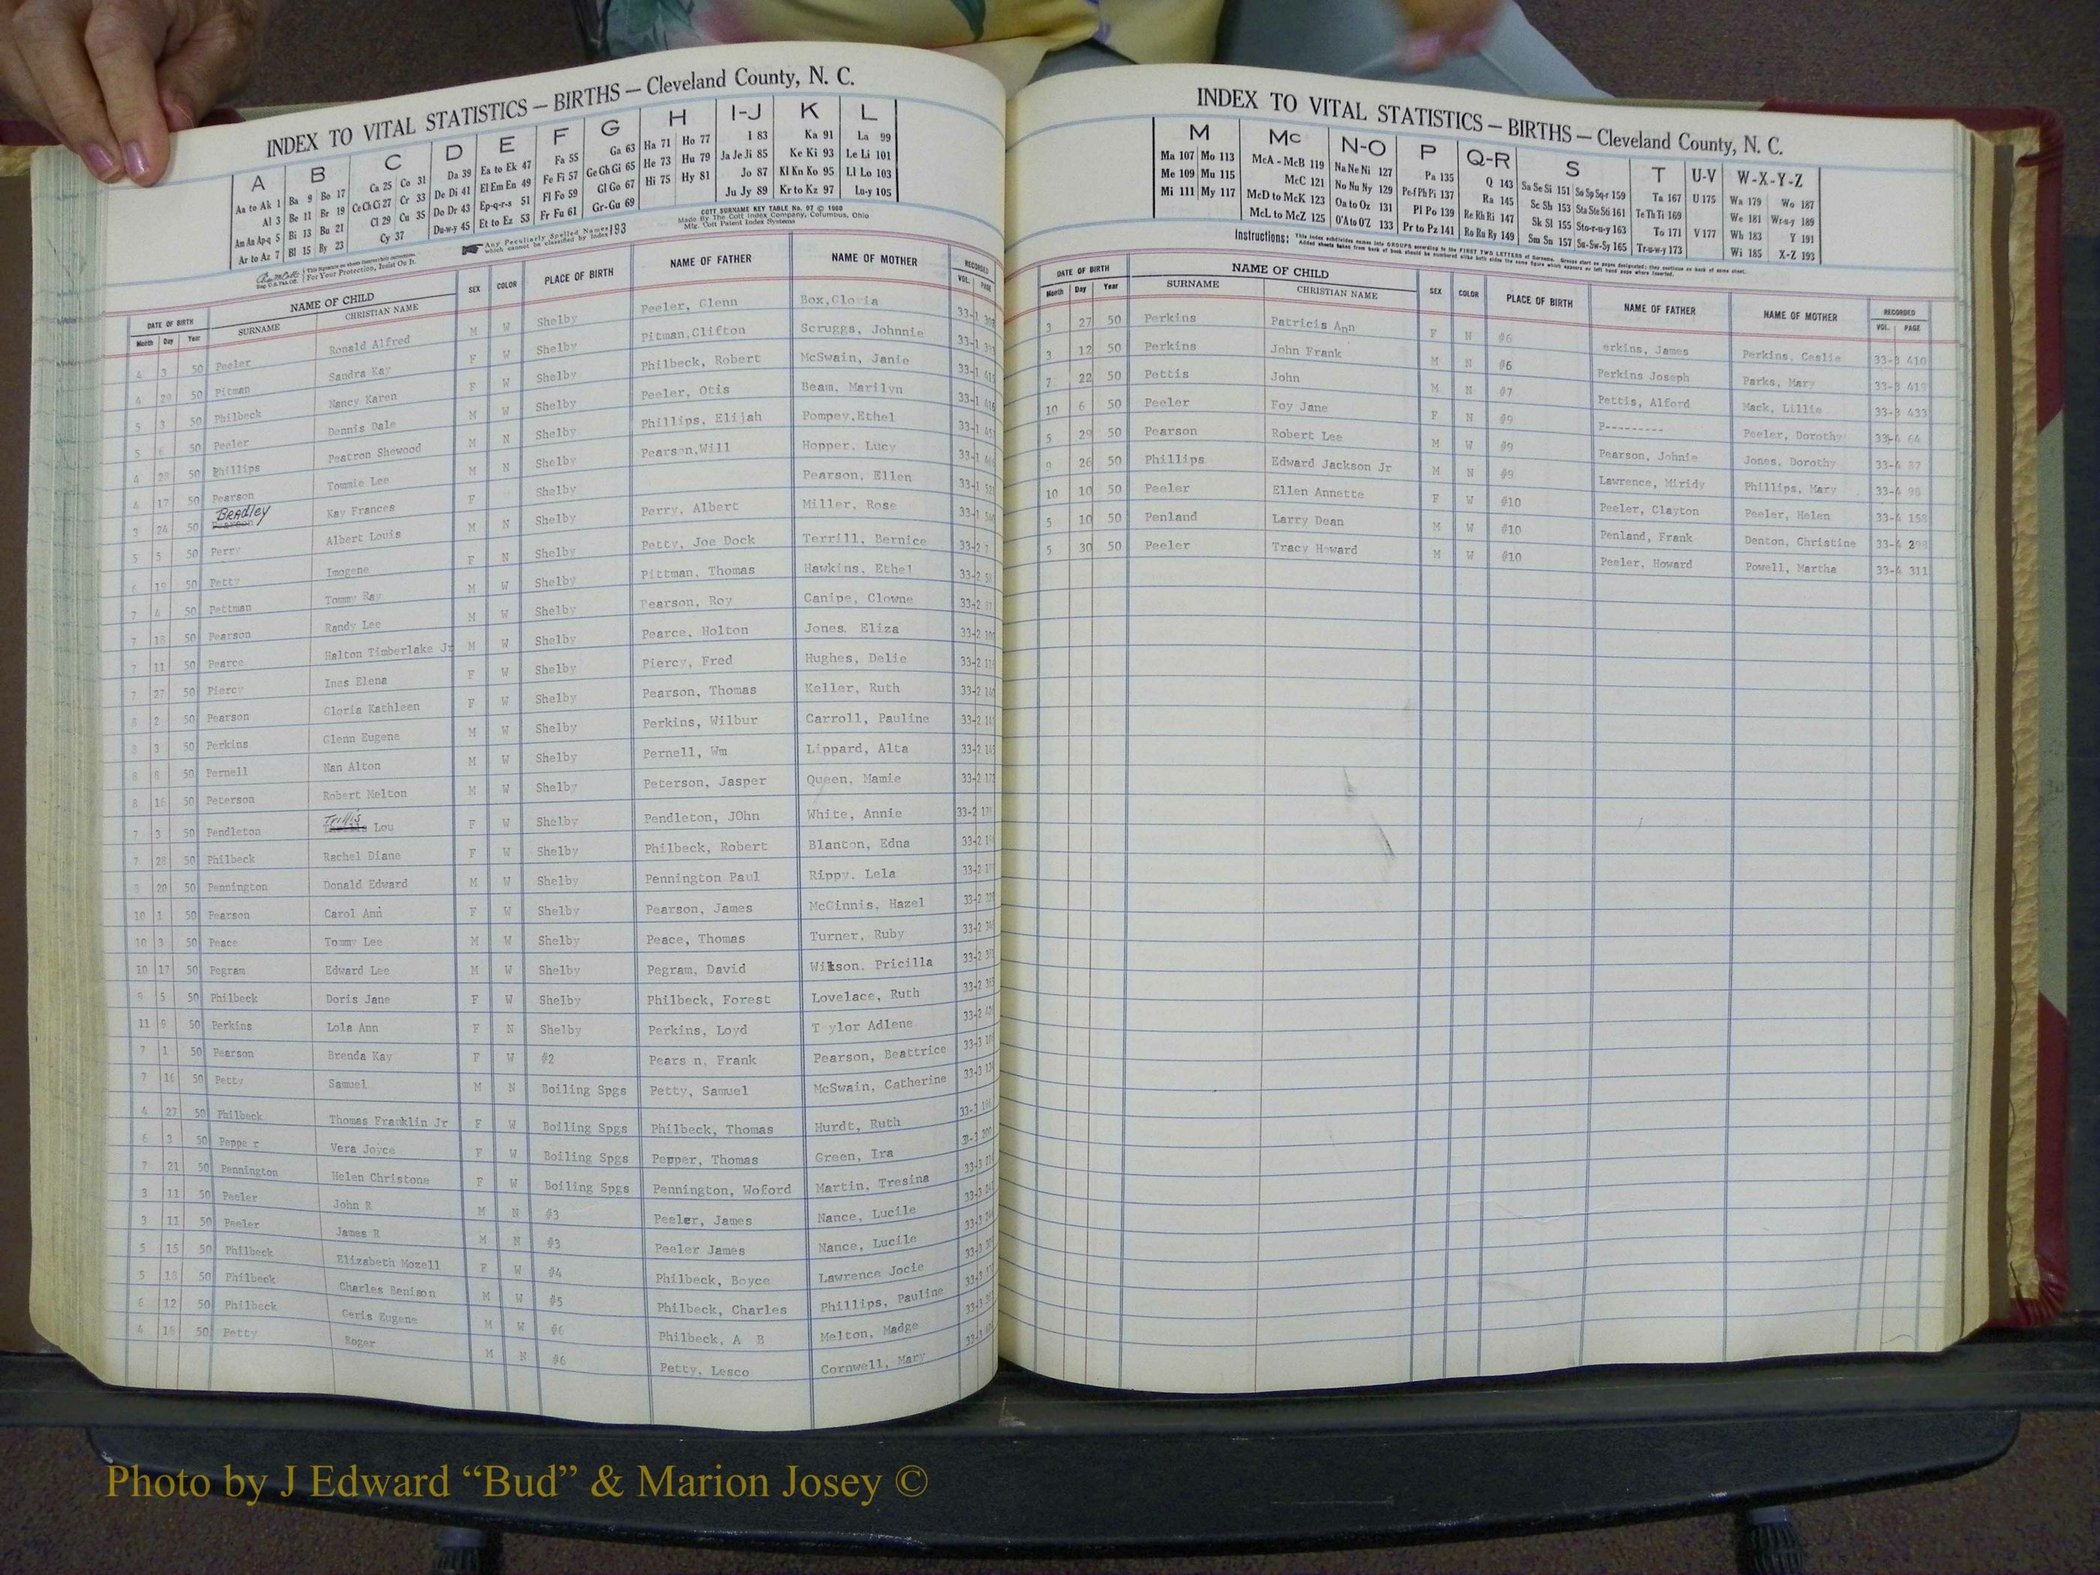 INDEX TO VITAL STATISTICS – BIRTHS – Cleveland County, N. C.
A B C D E F G H I-J K L
Aa to Ak 1 Ba 9 Bo 17 Ca 25 Co 31 Da 39 Ea to Ek 47 Fa 55 Ga 63 Ha 71 Ho 77 I 83 Ka 91 La 99
Al 3 Be 11 Br 19 Ce Ch Ci 27 Cr 33 De Di 41 El Em En 49 Fe Fi 57 Ge Gh Gi 65 He 73 Hu 79 Ja Je Ji 85 Ke Ki 93 Le Li 101
Am An Ap-q 5 Bi 13 Bu 21 Cl 29 Cu 35 Do Dr 43 Ep-q-r-s 51 Fl Fo 59 Gl Go 67 Hi 75 Hy 81 Jo 87 Kl Kn Ko 95 Ll Lo 103
Ar to Az 7 Bl 15 By 23 Cy 37 Du-w-y 45 Et to Ez 53 Fr Fu 61 Gr-Gu 69 Ju Jy 89 Kr to Kz 97 Lu-y 105
COTT SURNAME KEY TABLE No. 07 © 1960
Made By The Cott Index Company, Columbus, Ohio
Mfg. Cott Patent Index Systems
Any Peculiarly Spelled Names which cannot be classified by Index 193
For Your Protection, Insist On It.
DATE OF BIRTH NAME OF CHILD SEX COLOR PLACE OF BIRTH NAME OF FATHER NAME OF MOTHER RECORDED
Month Day Year SURNAME CHRISTIAN NAME VOL. PAGE
4 3 50 Peeler Ronald Alfred M W Shelby Peeler, Glenn Box, Gloria 33-1
4 29 50 Pitman Sandra Kay F W Shelby Pitman,Clifton Scruggs, Johnnie 33-1
5 3 50 Philbeck Nancy Karen F W Shelby Philbeck, Robert McSwain, Janie 33-1
5 6 50 Peeler Dennis Dale M W Shelby Peeler, Otis Beam, Marilyn 33-1
4 28 50 Phillips Peatron Shewood M N Shelby Phillips, Elijah Pompey,Ethel 33-1
4 17 50 Pearson Tommie Lee M N Shelby Pearson,Will Hopper, Lucy 33-1
3 24 50 BRADley Pearson Kay Frances F Shelby Pearson, Ellen 33-1
5 5 50 Perry Albert Louis M N Shelby Perry, Albert Miller, Rose 33-1
6 19 50 Petty Imogene F N Shelby Petty, Joe Dock Terrill, Bernice 33-2
7 4 50 Pettman Tommy Ray M W Shelby Pittman, Thomas Hawkins, Ethel 33-2
7 18 50 Pearson Randy Lee M W Shelby Pearson, Roy Canipe, Clowne 33-2
7 11 50 Pearce Halton Timberlake Jr M W Shelby Pearce, Holton Jones, Eliza 33-2
7 27 50 Piercy Ines Elena F W Shelby Piercy, Fred Hughes, Delie 33-2
8 2 50 Pearson Gloria Kathleen F W Shelby Pearson, Thomas Keller, Ruth 33-2
8 3 50 Perkins Glenn Eugene M W Shelby Perkins, Wilbur Carroll, Pauline 33-2
8 8 50 Pernell Nan Alton M W Shelby Pernell, Wm Lippard, Alta 33-2
8 16 50 Peterson Robert Melton M W Shelby Peterson, Jasper Queen, Mamie 33-2
7 3 50 Pendleton Trillis Lou F W Shelby Pendleton, JOhn White, Annie 33-2
7 28 50 Philbeck Rachel Diane F W Shelby Philbeck, Robert Blanton, Edna 33-2
20 50 Pennington Donald Edward M W Shelby Pennington Paul Rippy. Lela 33-2
10 1 50 Pearson Carol Ann F W Shelby Pearson, James McGinnis, Hazel 33-2
10 3 50 Peace Tommy Lee M W Shelby Peace, Thomas Turner, Ruby 33-2
10 17 50 Pegram Edward Lee M W Shelby Pegram, David Wilson. Pricilla 33-2
9 5 50 Philbeck Doris Jane F W Shelby Philbeck, Forest Lovelace, Ruth 33-2
11 9 50 Perkins Lola Ann F N Shelby Perkins, Loyd T ylor Adlene 33-2
7 1 50 Pearson Brenda Kay F W #2 Pears n, Frank Pearson, Beattrice 33-3
7 16 50 Petty Samuel M N Boiling Spgs Petty, Samuel McSwain, Catherine 33-3
4 27 50 Philbeck Thomas Franklin Jr F W Boiling Spgs Philbeck, Thomas Hurdt, Ruth 33-3
6 3 50 Peppe r Vera Joyce F W Boiling Spgs Pepper, Thomas Green, Ira
7 21 50 Pennington Helen Christone F W Boiling Spgs Pennington, Woford Martin, Tresina 33-3
3 11 50 Peeler John R M N #3 Peeler, James Nance, Lucile 33-3
3 11 50 Peeler James R M N #3 Peeler James Nance, Lucile 33-3
5 15 50 Philbeck Elizabeth Mozell F W #4 Philbeck, Boyce Lawrence Jocie 33-3
5 18 50 Philbeck Charles Benison M W #5 Philbeck, Charles Phillips, Pauline 33-3
6 12 50 Philbeck Geris Eugene M W #6 Philbeck, A B Melton, Madge 33-3
4 18 50 Petty Roger M N #6 Petty, Lesco Cornwell, Mary 33-3
INDEX TO VITAL STATISTICS – BIRTHS – Cleveland County, N. C.
M Mc N-O P Q-R S T U-V W-X-Y-Z
Ma 107 Mo 113 McA - McB 119 Na Ne Ni 127 Pa 135 Q 143 Sa Se Si 151 So Sp Sq-r 159 Ta 167 U 175 Wa 179 Wo 187
Me 109 Mu 115 McC 121 No Nu Ny 129 Pe-f Ph Pi 137 Ra 145 Sc Sh 153 Sta Ste Sti 161 Te Th Ti 169 We 181 Wr-u-y 189
Mi 111 My 117 McD to McK 123 Oa to Oz 131 Pl Po 139 Re Rh Ri 147 Sk Sl 155 Sto-r-u-y 163 To 171 V 177 Wh 183 Y 191
McL to McZ 125 O'A to O'Z 133 Pr to Pz 141 Ro Ru Ry 149 Sm Sn 157 Su-Sw-Sy 165 Tr-u-w-y 173 Wi 185 X-Z 193
Instructions: This index subdivides names into GROUPS according to the FIRST TWO LETTERS of Surname. Groups start on pages designated; they continue on back of same sheet.
Added sheets taken from back of book should be numbered alike both sides the same figure which appears on left hand page where inserted.
DATE OF BIRTH NAME OF CHILD SEX COLOR PLACE OF BIRTH NAME OF FATHER NAME OF MOTHER RECORDED
Month Day Year SURNAME CHRISTIAN NAME VOL. PAGE
3 27 50 Perkins Patricis Ann F N #6 erkins, James Perkins, Ceslie 33-3 410
3 12 50 Perkins John Frank M N #6 Perkins Joseph Parks, Mary 33-3 419
7 22 50 Pettis John M N #7 Pettis, Alford Mack, Lillie 33-3 433
10 6 50 Peeler Foy Jane F N #9 P--------- Peeler, Dorothy 33-4 64
5 29 50 Pearson Robert Lee M W #9 Pearson, Johnie Jones, Dorothy 33-4 87
9 26 50 Phillips Edward Jackson Jr M N #9 Lawrence, Miridy Phillips, Mary 33-4 98
10 10 50 Peeler Ellen Annette F W #10 Peeler, Clayton Peeler, Helen 33-4 158
5 10 50 Penland Larry Dean M W #10 Penland, Frank Denton, Christine 33-4
5 30 50 Peeler Tracy Howard M W #10 Peeler, Howard Powell, Martha 33-4 311
Photo by J Edward “Bud” & Marion Josey ©